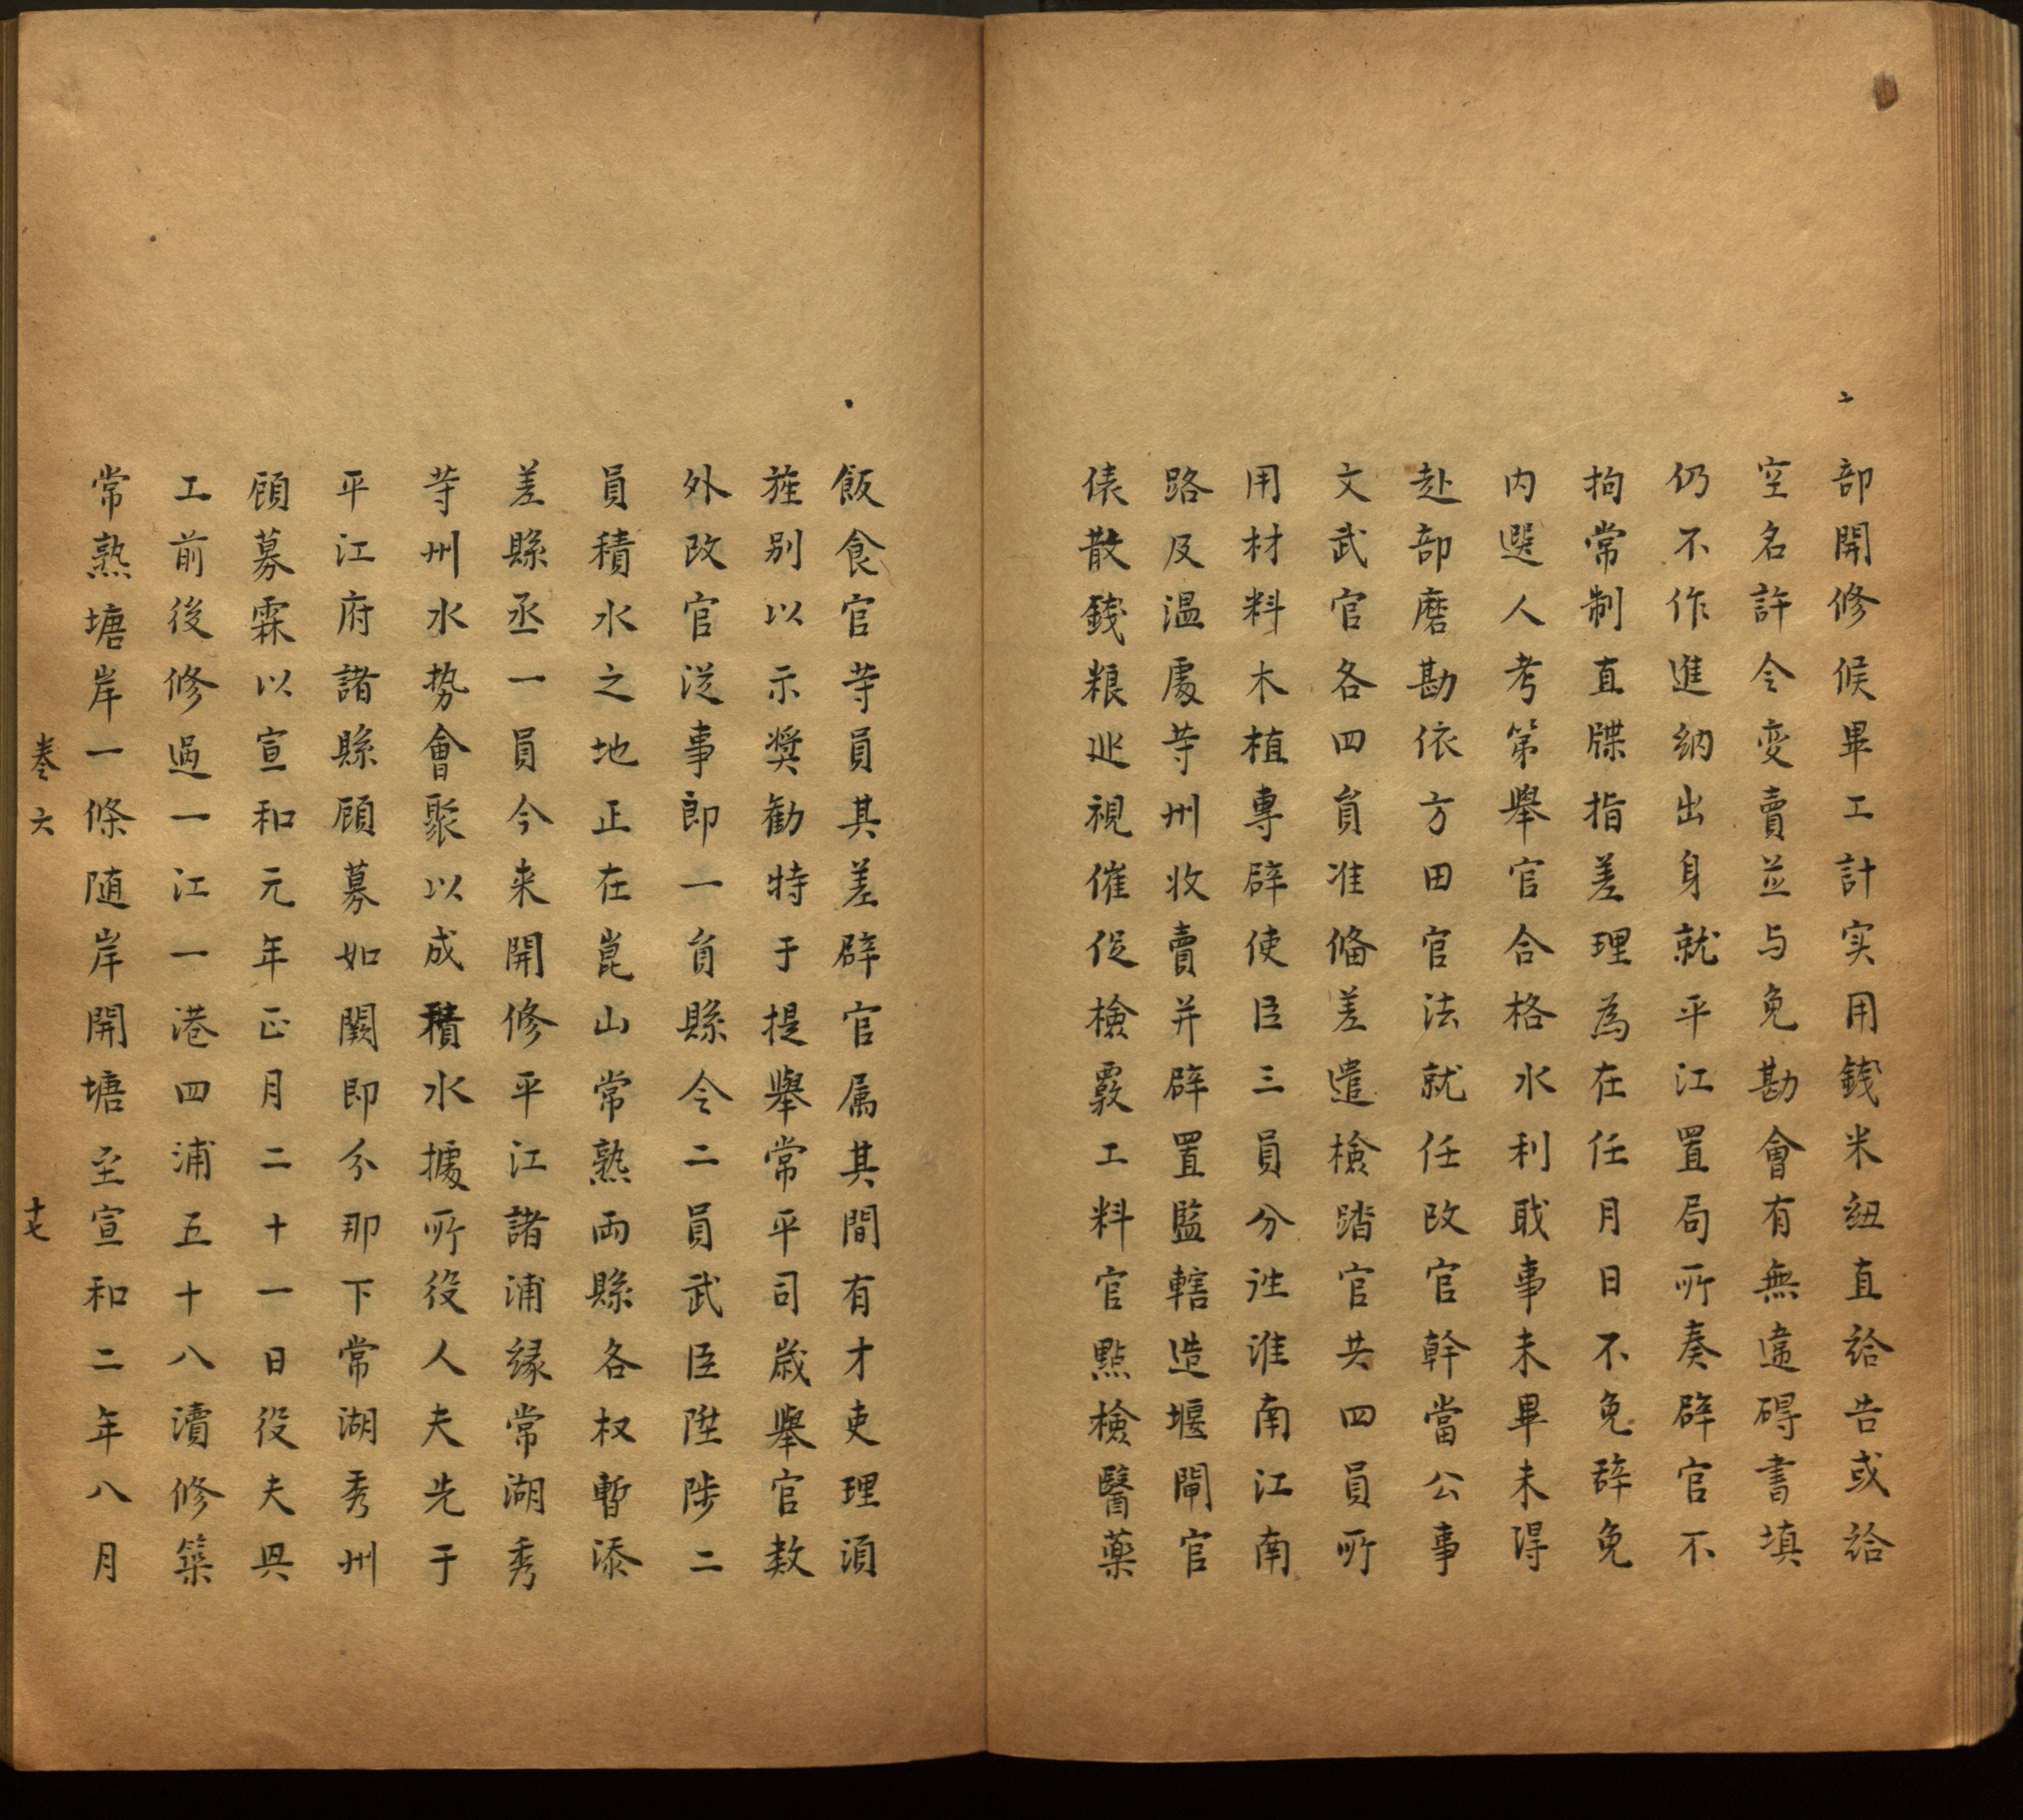 部開修候畢工計实用錢米紐直給告或給
空名許令变賣並与免勘會有無違碍書填
仍不作進納出身就平江置局所奏辟官不
拘常制直牒指差理為在任月日不免辞免
内選人考第舉官合格水利職事未畢未得
赴部磨勘依方田官法就任改官幹當公事
文武官各四員准俻差遣檢踏官共四員所
用材料木植專辟使臣三員分詿淮南江南
路及温處䓁州收賣并辟置監轄造堰閘官
俵散錢粮廵視催促檢覈工料官點檢醫藥
飯食官䓁員其差辟官属其間有才吏理須
旌别以示奬勸特于提舉常平司歲舉官数
外改官従事郎一員縣令二員武臣陞陟二
員積水之地正在崑山常熟両縣各权暫添
差縣丞一員今来開修平江諸浦縁常湖秀
䓁州水势會聚以成積水據所役人夫先于
平江府諸縣顧募如闕即分那下常湖秀州
顧募霖以宣和元年正月二十一日役夫興
工前後修過一江一港四浦五十八瀆修築
常熟塘岸一條随岸開塘至宣和二年八月
卷六
十七